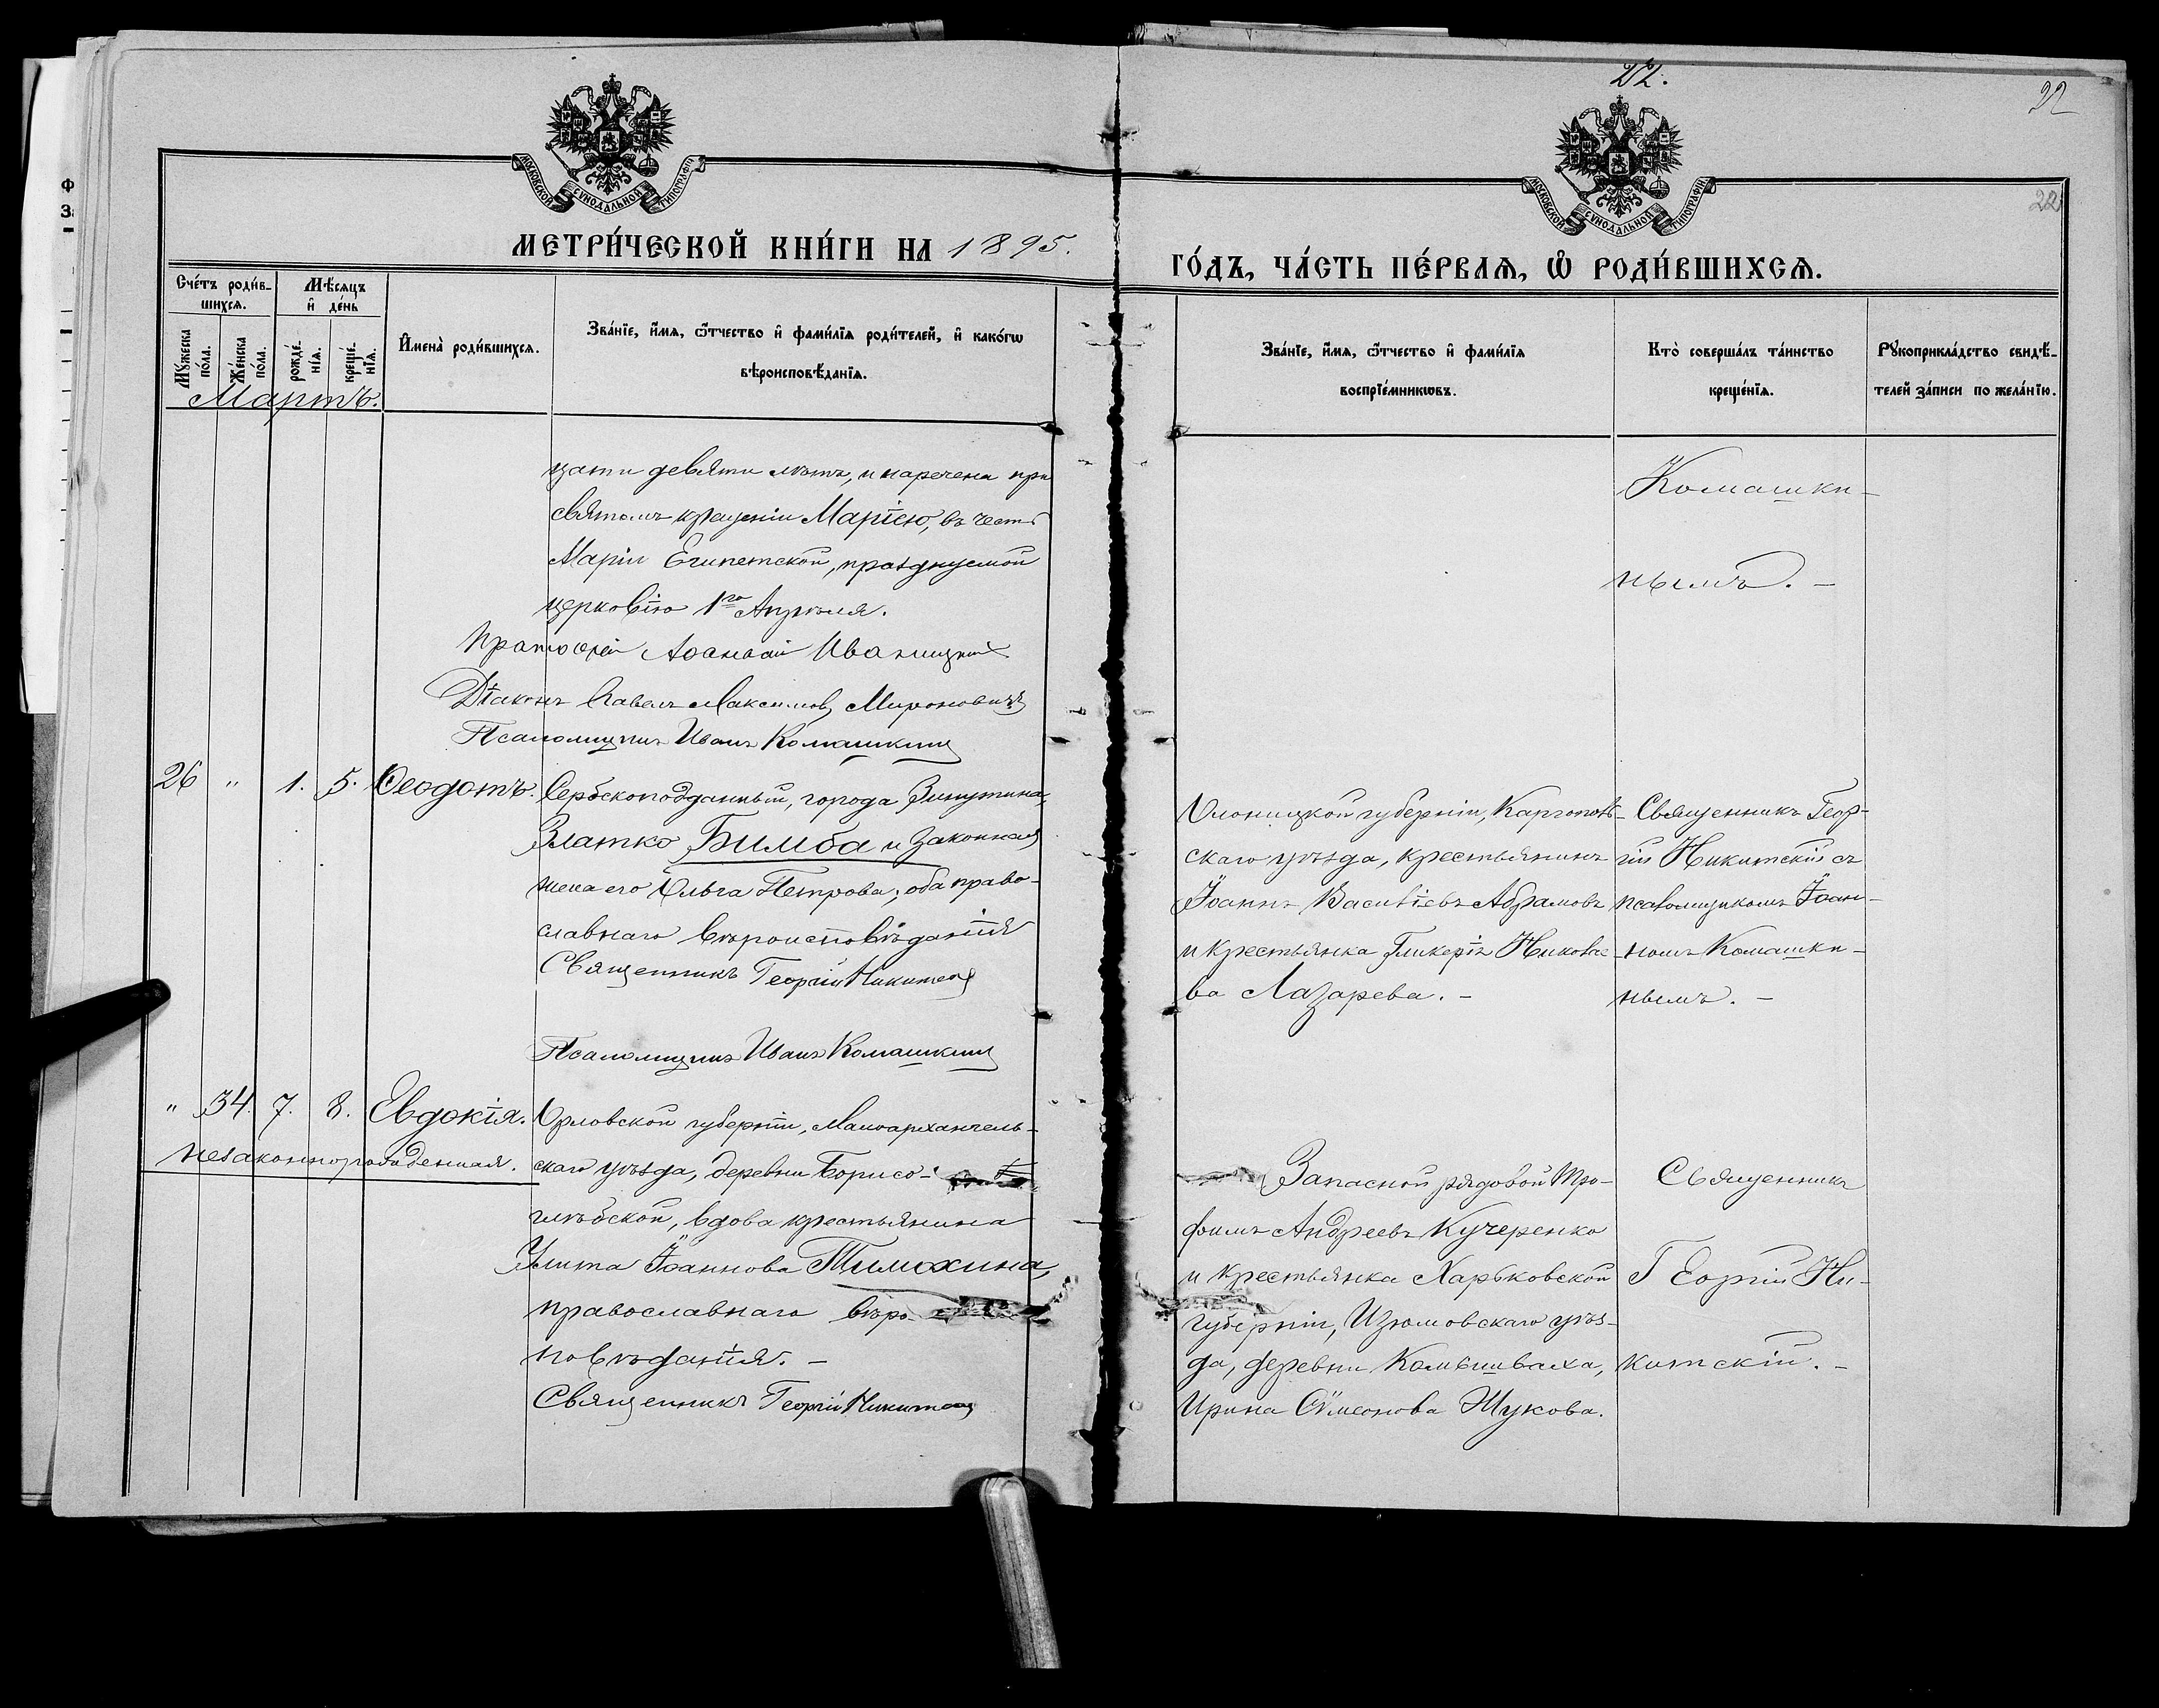 22.
22
22
МОСКОВСКОЙ СѴНОДАЛЬНОЙ ТИПОГРАФІИ
МОСКОВСКОЙ СѴНОДАЛЬНОЙ ТИПОГРАФІИ
МЕТРИ́ЧЕСКОЙ КНИ́ГИ НА 1895.
ГО́ДЪ, ЧА́СТЬ ПЕ́РВАѦ, Ѡ РОДИ́ВШИХСѦ.
Сче́тъ роди́в-
шихсѧ.
Мꙋ́жеска по́ла.
Же́нска по́ла.
Мѣ́сѧцъ
и҆ де́нь
рожде́-
нїѧ.
креще́-
нїѧ.
И҆мена̀ роди́вшихсѧ.
Зва́нїе, и҆́мѧ, ѻ҆́тчество и҆ фами́лїѧ роди́телей, и҆ како́гѡ
вѣроисповѣ́данїѧ.
Зва́нїе, и҆́мѧ, ѻ҆́тчество и҆ фами́лїѧ
воспрїе́мникѡвъ.
Кто̀ соверша́лъ та́инство
креще́нїѧ.
Рꙋкоприкла́дство свидѣ́-
телей за́писи по жела́нїю.
Мартъ.
цати девяти лѣтъ, и наречена при
святомъ крещеніи Маріею, въ честь
Маріи Египетской, празднуемой
церковію 1го Апрѣля.
Комашки-
нымъ. -
Протоіерей Иваницкій
Діаконъ Павелъ Максимов Мироновичъ
Псаломщикъ Иванъ Комашкинъ
26 " 1. 5. Ѳеодотъ.
Сербскоподданный, города
Златко Бимба и законная
жена его Ольга Петрова; оба право-
славнаго вѣроисповѣданія
Священникъ Георгій Никитскій
Псаломщикъ Иванъ Комашкинъ
Олонецкой губерніи, Каргополь-
скаго уѣзда, крестьянинъ
Іоаннъ Василіевъ Абрамовъ
и крестьянка Гликерія Николае-
ва Лазарева. -
Священникъ Геор-
гій Никитскій съ
псаломщикомъ Іоан-
номъ Комашки-
нымъ. -
" 34. 7. 8. Евдокія.
незаконнорожденная.
Орловской губерніи, Малоархангель-
скаго уѣзда, деревни Борисо-
глѣбской, вдова крестьянина
Улита Іоаннова Тимохина,
православнаго вѣро-
повѣданія. -
Священникъ Георгій Никитскій
Запасной рядовой Тро-
фимъ Андреевъ Кучеренко
и крестьянка Харьковской
губерніи, Изюмовскаго уѣз-
да, деревни Камышваха,
Ирина Сѵмеонова Жукова.
Священникъ
Георгій Ни-
китскій. -